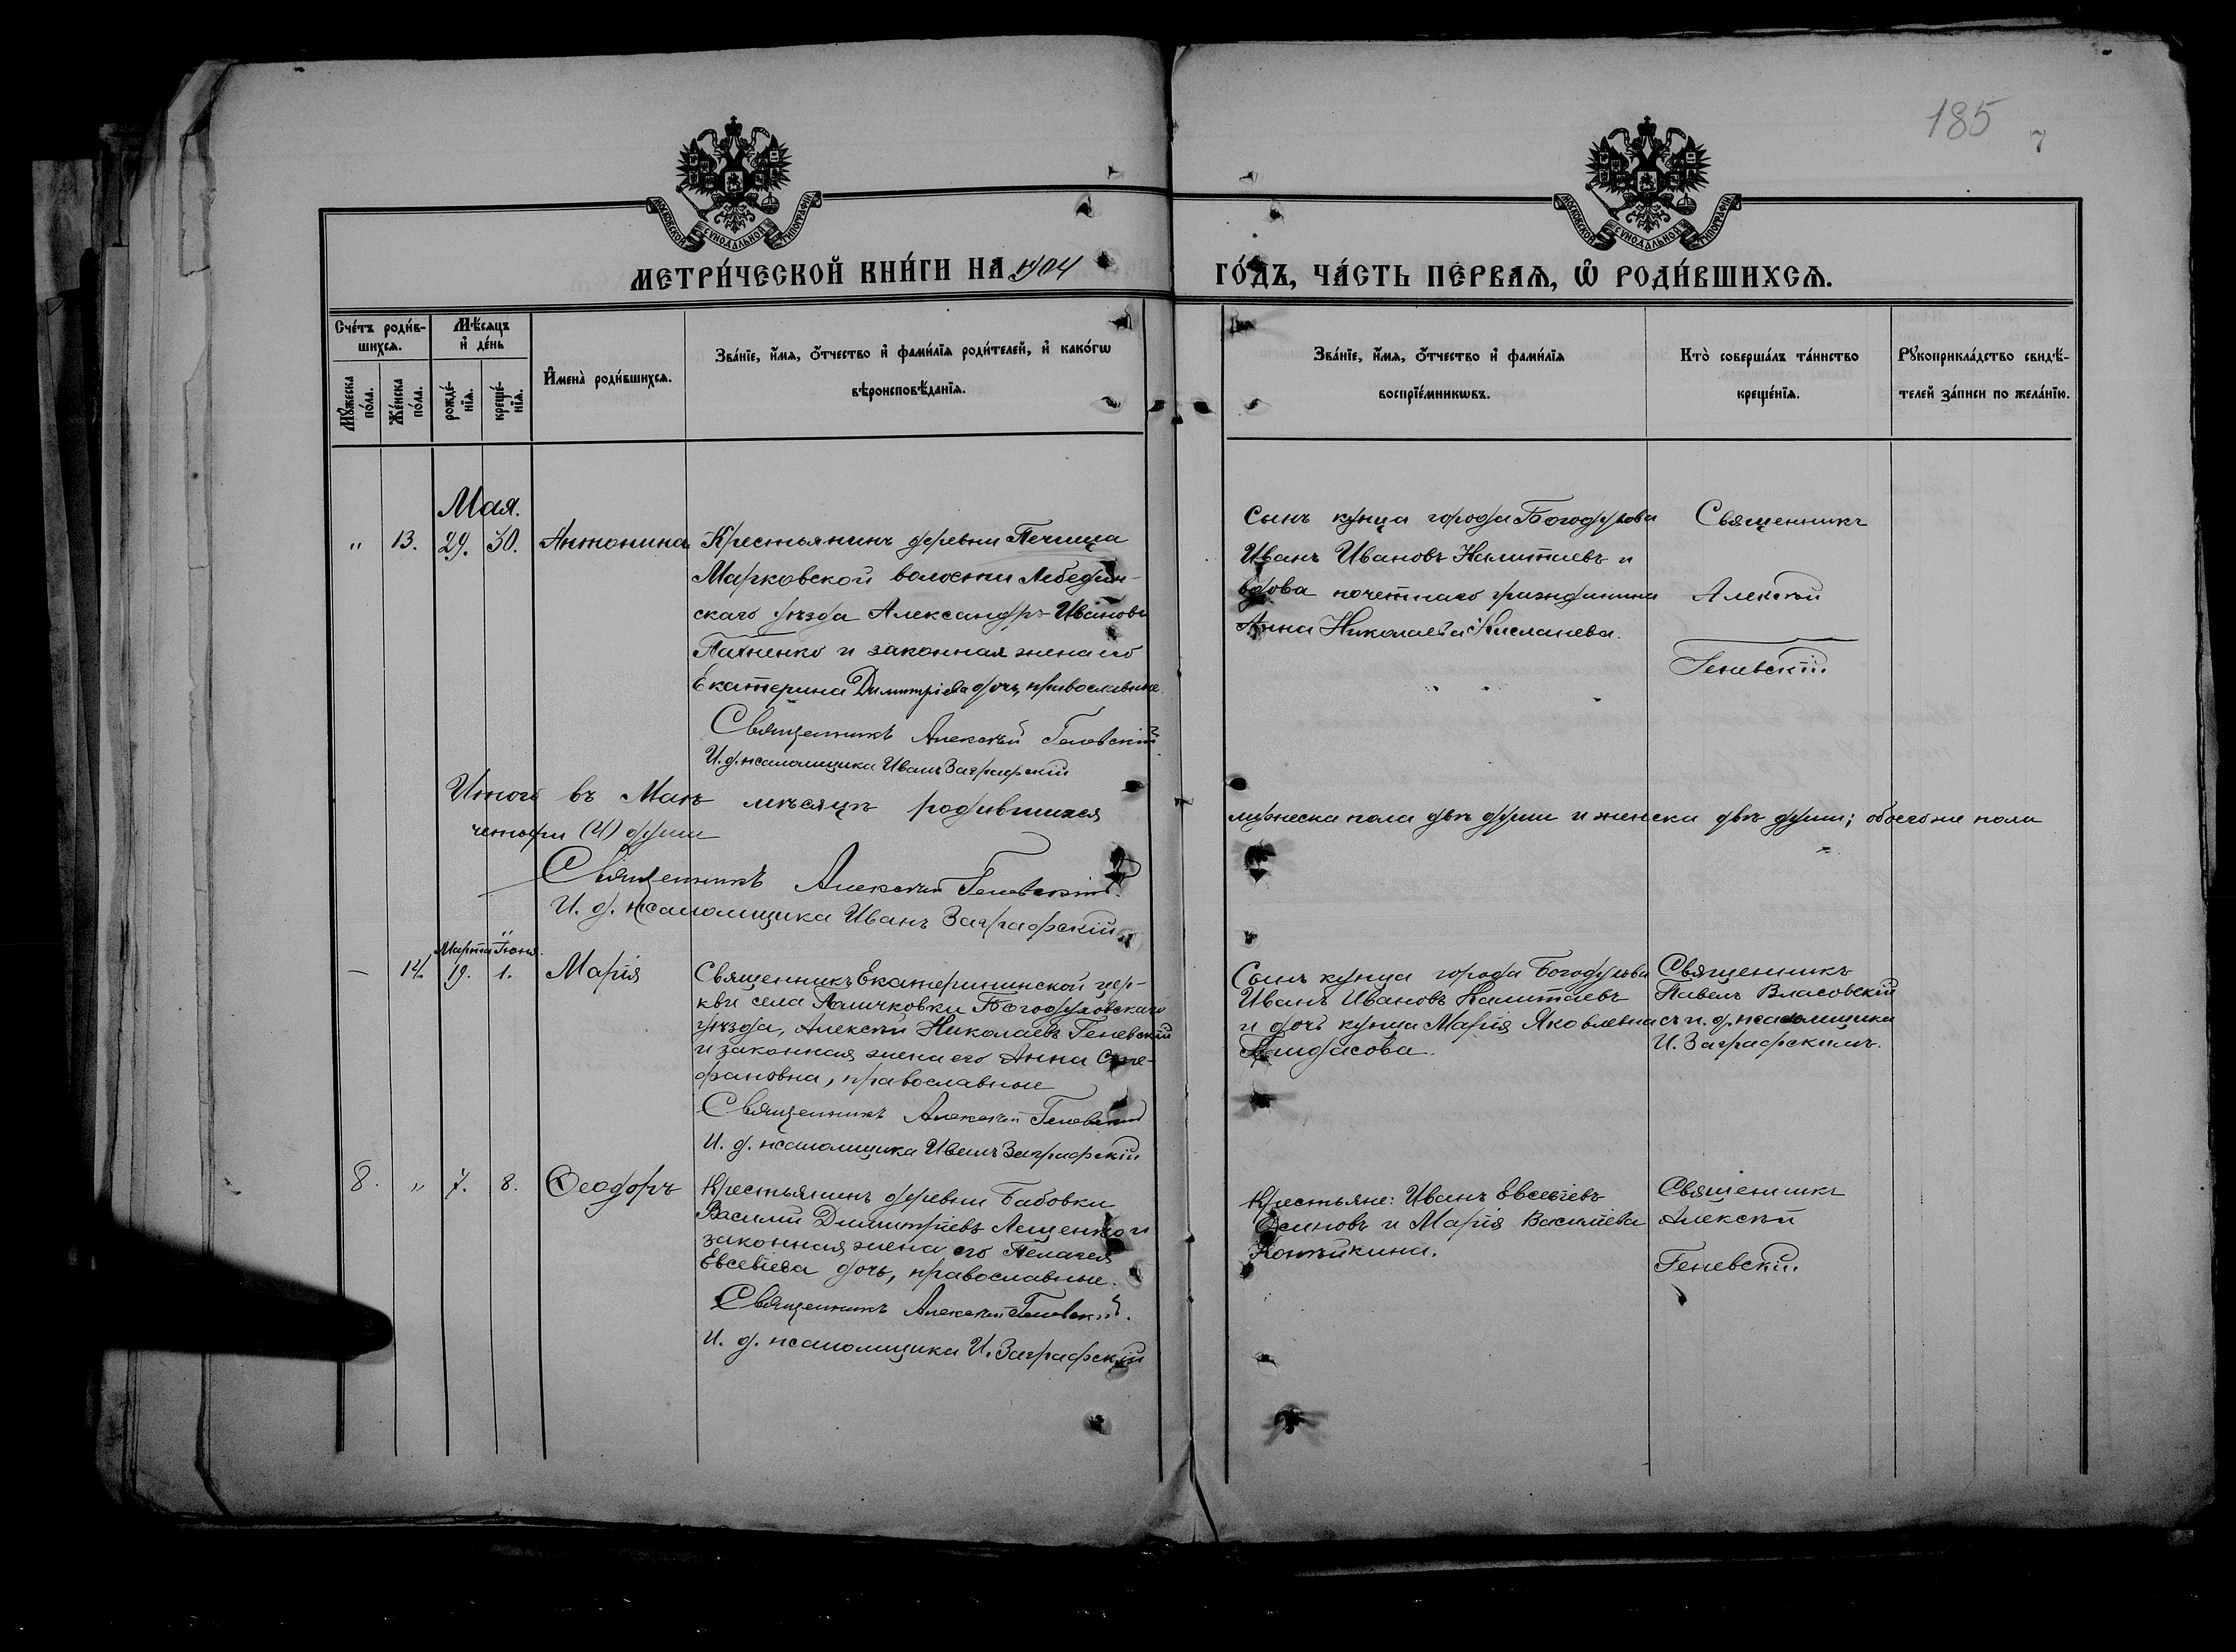 185
7
МОСКОВСКОЙ СУНОДАЛЬНОЙ ТИПОГРАФІИ
МОСКОВСКОЙ СУНОДАЛЬНОЙ ТИПОГРАФІИ
МЕТРИ́ЧЕСКОЙ КНИ́ГИ НА 1904
ГО́ДЪ, ЧА́СТЬ ПЕ́РВАЯ, Ѡ҆ РОДИ́ВШИХСЯ.
Сче́тъ роди́в-
шихся.
Мꙋ́жеска по́ла.
Же́нска по́ла.
Мѣ́сяцъ
и҆ де́нь
рожде́-
нїя.
креще́-
нїя.
И҆мена̀ роди́вшихся.
Зва́нїе, и҆́мя, ѻ҆́тчество и҆ фами́лїя роди́телей, и҆ како́гѡ
вѣроисповѣ́данїя.
Зва́нїе, и҆́мя, ѻ҆́тчество и҆ фами́лїя
воспрїе́мникѡвъ.
Кто̀ соверша́лъ та́инство
креще́нїя.
Рꙋкоприкла́дство свидѣ́-
телей за́писи по жела́нїю.
Мая.
" 13. 29. 30. Антонина
Крестьянинъ деревни Печища
Марковской волости Лебедин-
скаго уѣзда Александръ Ивановъ
и законная жена его
Екатерина Димитріева дочь, православные.
Священникъ Алексѣй Геневскій
И. д. псаломщика Иванъ Заграфскій
Сынъ купца города Богодухова
Иванъ Ивановъ и
вдова почетнаго гражданина
Анна Николаева
Священникъ
Алексѣй
Геневскій
Итого въ Маѣ мѣсяцѣ родившихся
мужеска пола двѣ души и женска двѣ души; обоего же пола
четыре (4) души
Священникъ Алексѣй Геневскій.
И. д. псаломщика Иванъ Заграфскій
Марта Іюня.
— 14. 19. 1. Марія
Священникъ Екатерининской цер-
кви села Богодуховскаго
уѣзда, Алексѣй Николаевъ Геневскій
и законная жена его Анна Сте-
фановна, православные
Священникъ Алексѣй Геневскій
И. д. псаломщика Иванъ Заграфскій
Сынъ купца города Богодухова
Иванъ Ивановъ
и дочь купца Марія Яковлевна
Священникъ
Павелъ Власовскій
съ и. д. псаломщика
И. Заграфскимъ.
8. " 7. 8. Ѳеодоръ
Крестьянинъ деревни Бабовки
Василій Димитріевъ Лещенко и
законная жена его Пелагея
Евсевіева дочь, православные.
Священникъ Алексѣй Геневскій.
И. д. псаломщика И. Заграфскій
Крестьяне: Иванъ Евсевіевъ
Осиповъ и Марія Васильева
Священникъ
Алексѣй
Геневскій.